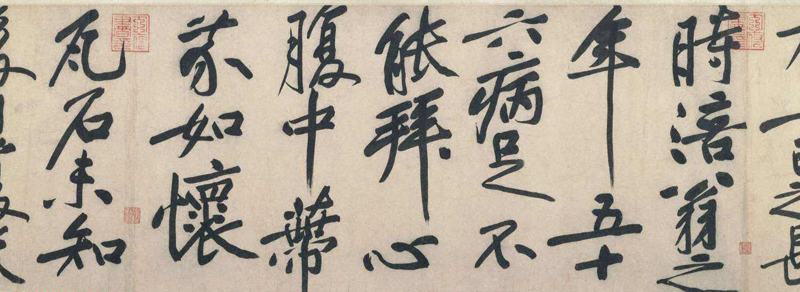 之長
時涪翁之
年五十
六病足不
能拜心
腹中蔕
芥如懷
瓦石未知